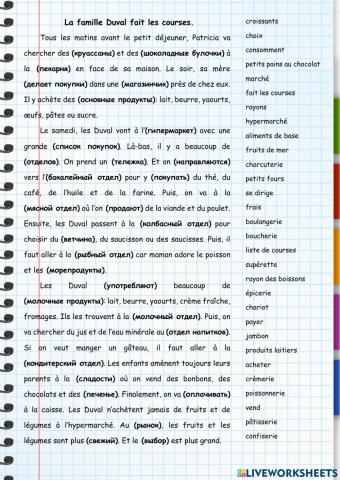 La famille Duval fait les courses.
Tous les matins avant le petit déjeuner, Patricia va
chercher des (круассаны) et des (шоколадные булочки) à
la (пекарня) en face de sa maison. Le soir, sa mère
(делает покупки) dans une (магазинчик) près de chez eux.
Il y achète des (основные продукты): lait, beurre, yaourts,
œufs, pâtes ou sucre.
Le samedi, les Duval vont à l'(гипермаркет) avec une
grande (список покупок). Là-bas, il y a beaucoup de
(отделов). On prend un (тележка). Et on (направляются)
vers l'(бакалейный отдел) pour y (покупать) du thé, du
café, de l'huile et de la farine. Puis, on va à la
(мясной отдел) où l'on (продают) de la viande et du poulet.
Ensuite, les Duval passent à la (колбасный отдел) pour
choisir du (ветчина), du saucisson ou des saucisses. Puis, il
faut aller à la (рыбный отдел) car maman adore le poisson
et les (морепродукты).
Les Duval (употребляют) beaucoup de
(молочные продукты): lait, beurre, yaourts, crème fraîche,
fromages. Ils les trouvent à la (молочный отдел). Puis, on
va chercher du jus et de l'eau minérale au (отдел напитков).
Si on veut manger un gâteau, il faut aller à la
(кондитерский отдел). Les enfants amènent toujours leurs
parents à la (сладости) où on vend des bonbons, des
chocolats et des (печенье). Finalement, on va (оплачивать)
à la caisse. Les Duval n'achètent jamais de fruits et de
légumes à l'hypermarché. Au (рынок), les fruits et les
légumes sont plus (свежий). Et le (выбор) est plus grand.
croissants
choix
consomment
petits pains au chocolat
marché
fait les courses
rayons
hypermarché
aliments de base
fruits de mer
charcuterie
petits fours
se dirige
frais
boulangerie
boucherie
liste de courses
supérette
rayon des boissons
épicerie
chariot
payer
jambon
produits laitiers
acheter
crèmerie
poissonnerie
vend
pâtisserie
confiserie
LIVEWORKSHEETS